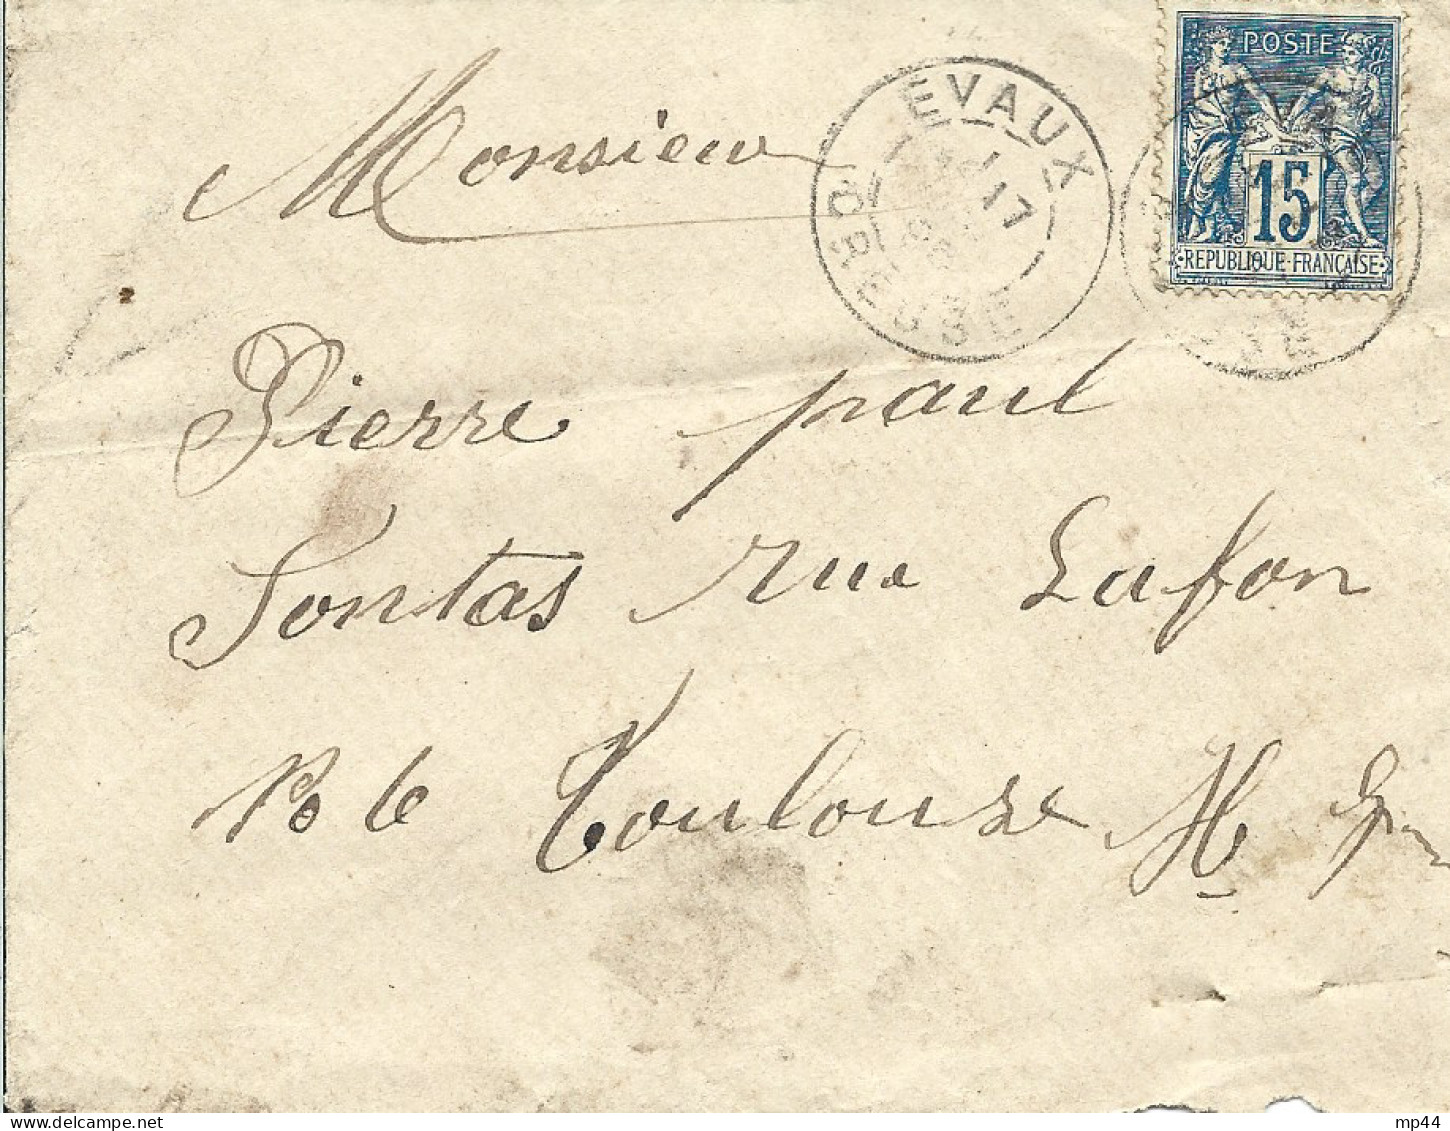 POSTE
15
REPUBLIQUE FRANÇAISE
EVAUX
17
CREUSE
Monsieur
Pierre paul
Sontas rue Lafon
No 6 Toulouse H
mp44